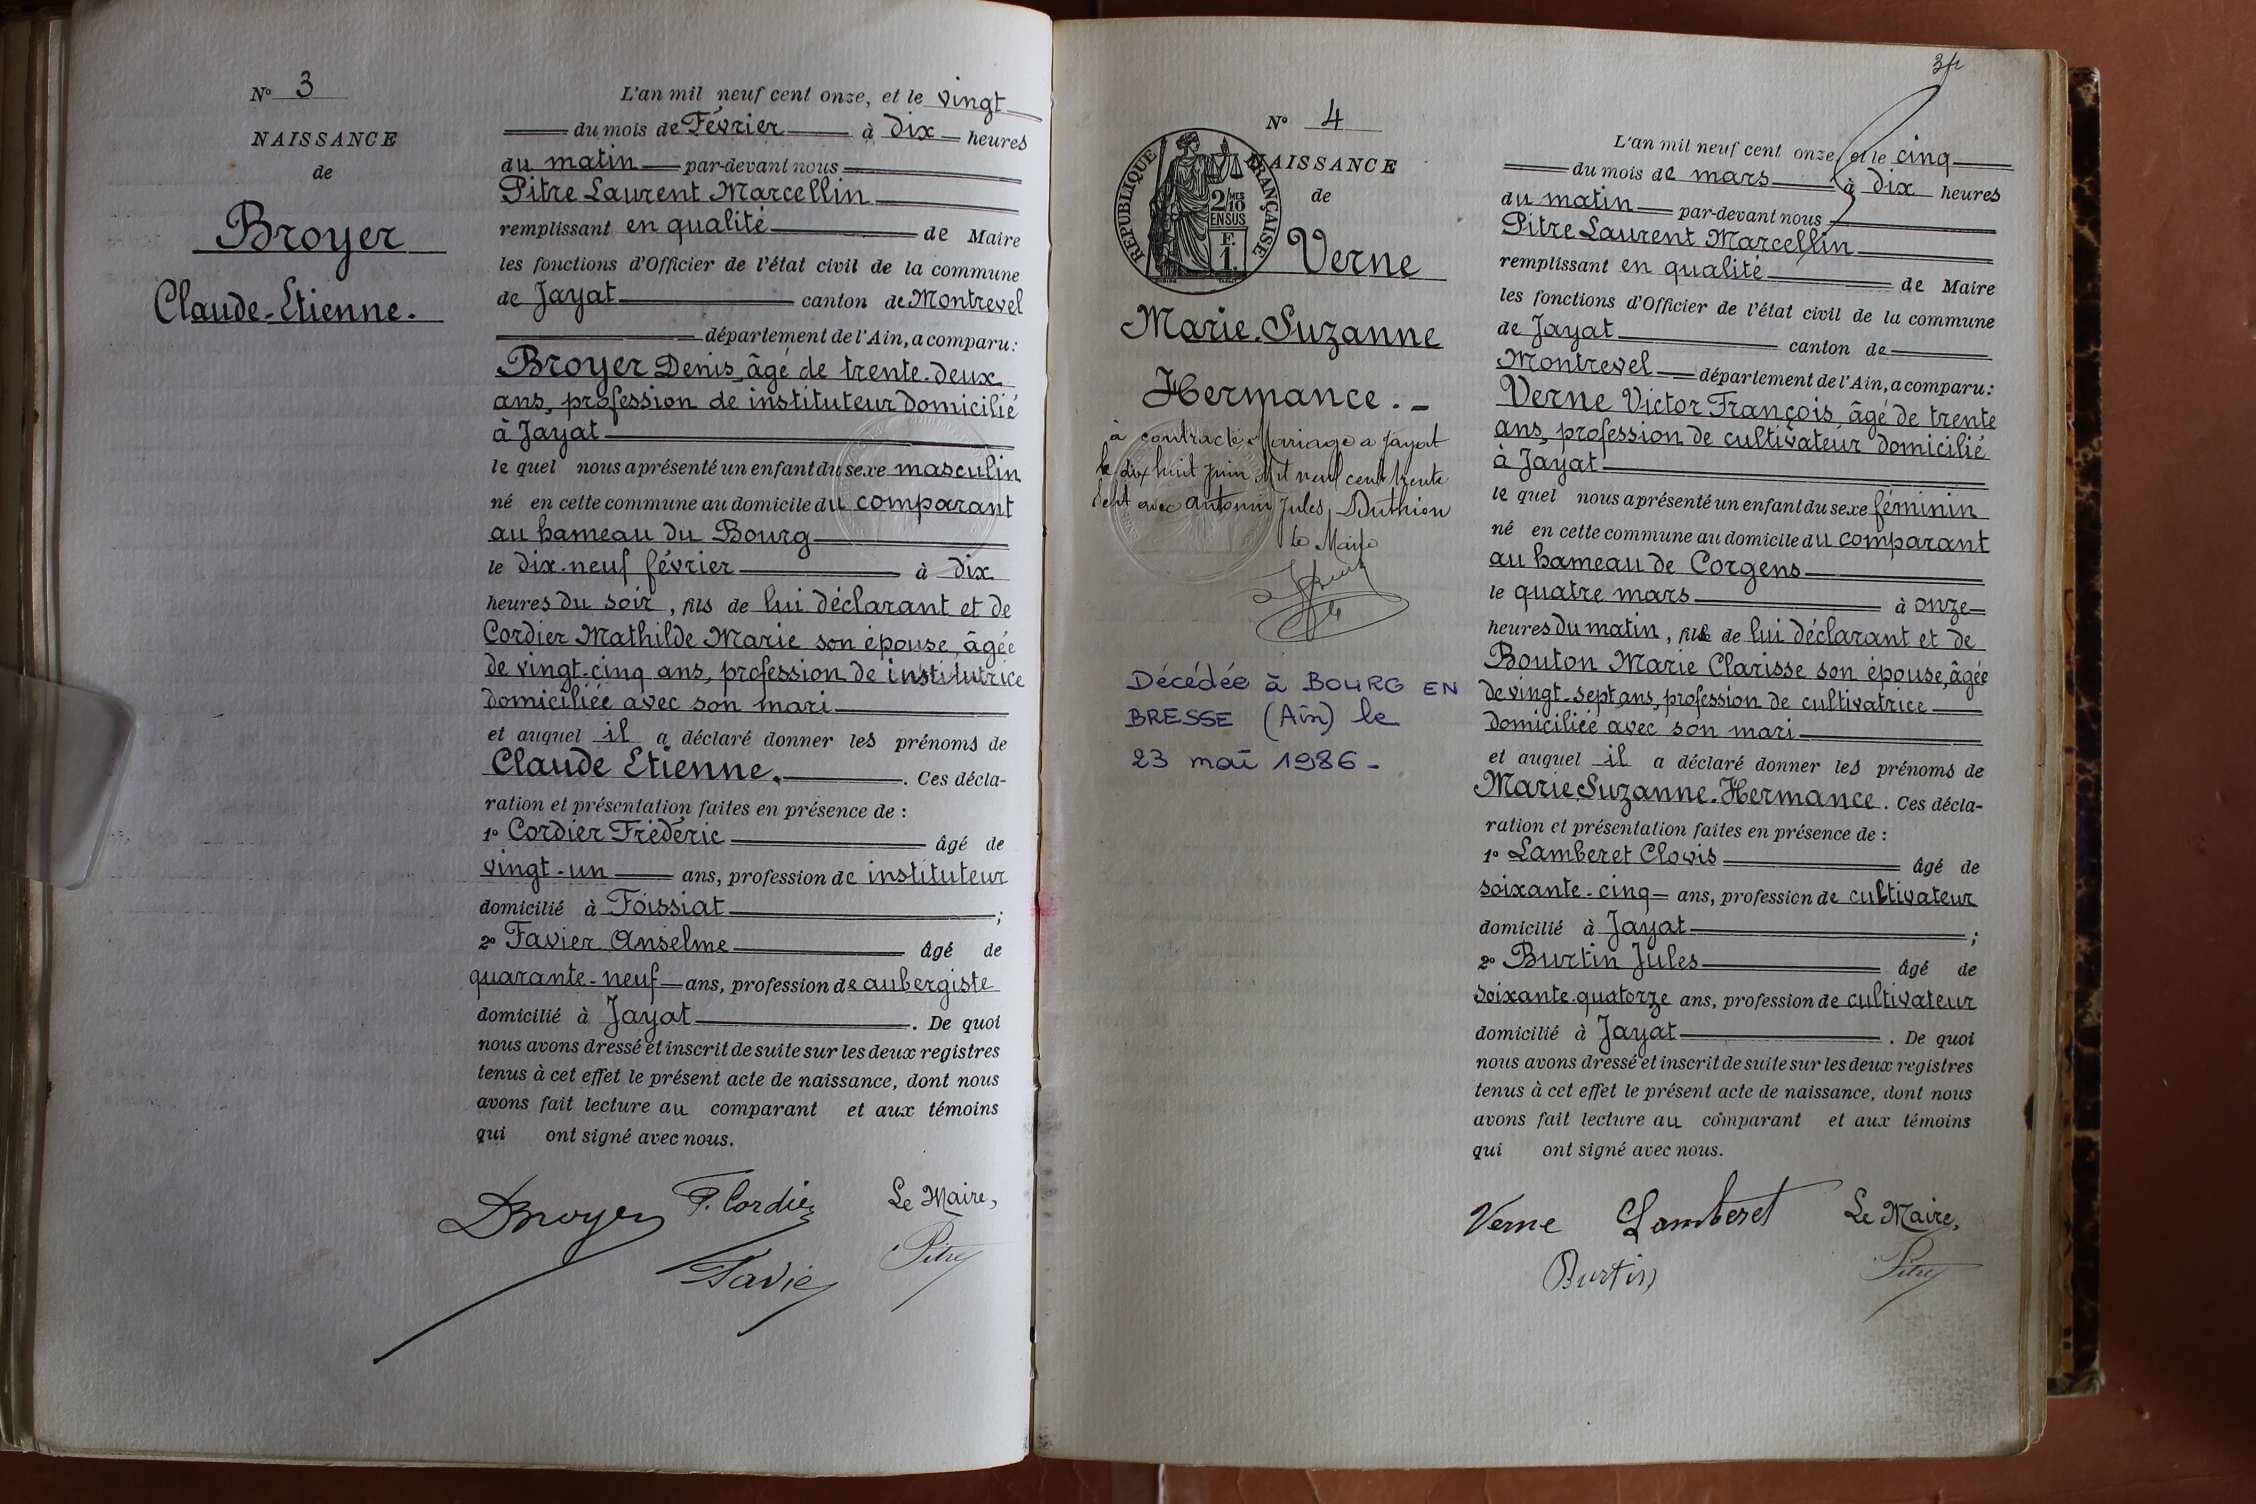 N° 3
NAISSANCE
de
Broyer
Claude-Etienne.
L'an mil neuf cent onze, et le vingt
du mois de Février à dix heures
du matin par-devant nous
Pitre Laurent Marcellin
remplissant en qualité de Maire
les fonctions d'Officier de l'état civil de la commune
de Jayat canton de Montrevel
département de l'Ain, a comparu:
Broyer Denis, âgé de trente-deux
ans, profession de instituteur domicilié
à Jayat
le quel nous a présenté un enfant du sexe masculin
né en cette commune au domicile du comparant
au hameau du Bourg
le dix-neuf février à dix
heures du soir, fils de lui déclarant et de
Cordier Mathilde Marie son épouse, âgée
de vingt-cinq ans, profession de institutrice
domiciliée avec son mari
et auquel il a déclaré donner les prénoms de
Claude Etienne. . Ces décla-
ration et présentation faites en présence de :
1° Cordier Frédéric âgé de
vingt-un ans, profession de instituteur
domicilié à Foissiat ;
2° Favier Anselme âgé de
quarante-neuf ans, profession de aubergiste
domicilié à Jayat . De quoi
nous avons dressé et inscrit de suite sur les deux registres
tenus à cet effet le présent acte de naissance, dont nous
avons fait lecture au comparant et aux témoins
qui ont signé avec nous.
DBroyer F. Cordier Le Maire,
Favier Pitre
N° 4
NAISSANCE
de
RÉPUBLIQUE FRANÇAISE
2/10 MES
EN SUS
F.
1.
Verne
Marie-Suzanne
Hermance. -
à contracté Mariage a Jayat
le dix huit Juin Mil neuf cent trente
sept avec Antonin Jules Duthion
Le Maire
Décédée à BOURG EN
BRESSE (Ain) le
23 mai 1986 -
L'an mil neuf cent onze, et le cinq
du mois de mars à dix heures
du matin par-devant nous
Pitre Laurent Marcellin
remplissant en qualité de Maire
les fonctions d'Officier de l'état civil de la commune
de Jayat canton de
Montrevel département de l'Ain, a comparu:
Verne Victor François, âgé de trente
ans, profession de cultivateur domicilié
à Jayat
le quel nous a présenté un enfant du sexe féminin
né en cette commune au domicile du comparant
au hameau de Corgens
le quatre mars à onze
heures du matin, fille de lui déclarant et de
Bouton Marie Clarisse son épouse, âgée
de vingt-sept ans, profession de cultivatrice
domiciliée avec son mari
et auquel il a déclaré donner les prénoms de
Marie-Suzanne-Hermance. Ces décla-
ration et présentation faites en présence de :
1° Lamberet Clovis âgé de
soixante-cinq ans, profession de cultivateur
domicilié à Jayat ;
2° Burtin Jules âgé de
soixante-quatorze ans, profession de cultivateur
domicilié à Jayat . De quoi
nous avons dressé et inscrit de suite sur les deux registres
tenus à cet effet le présent acte de naissance, dont nous
avons fait lecture au comparant et aux témoins
qui ont signé avec nous.
Verne Lamberet Le Maire,
Burtin Pitre